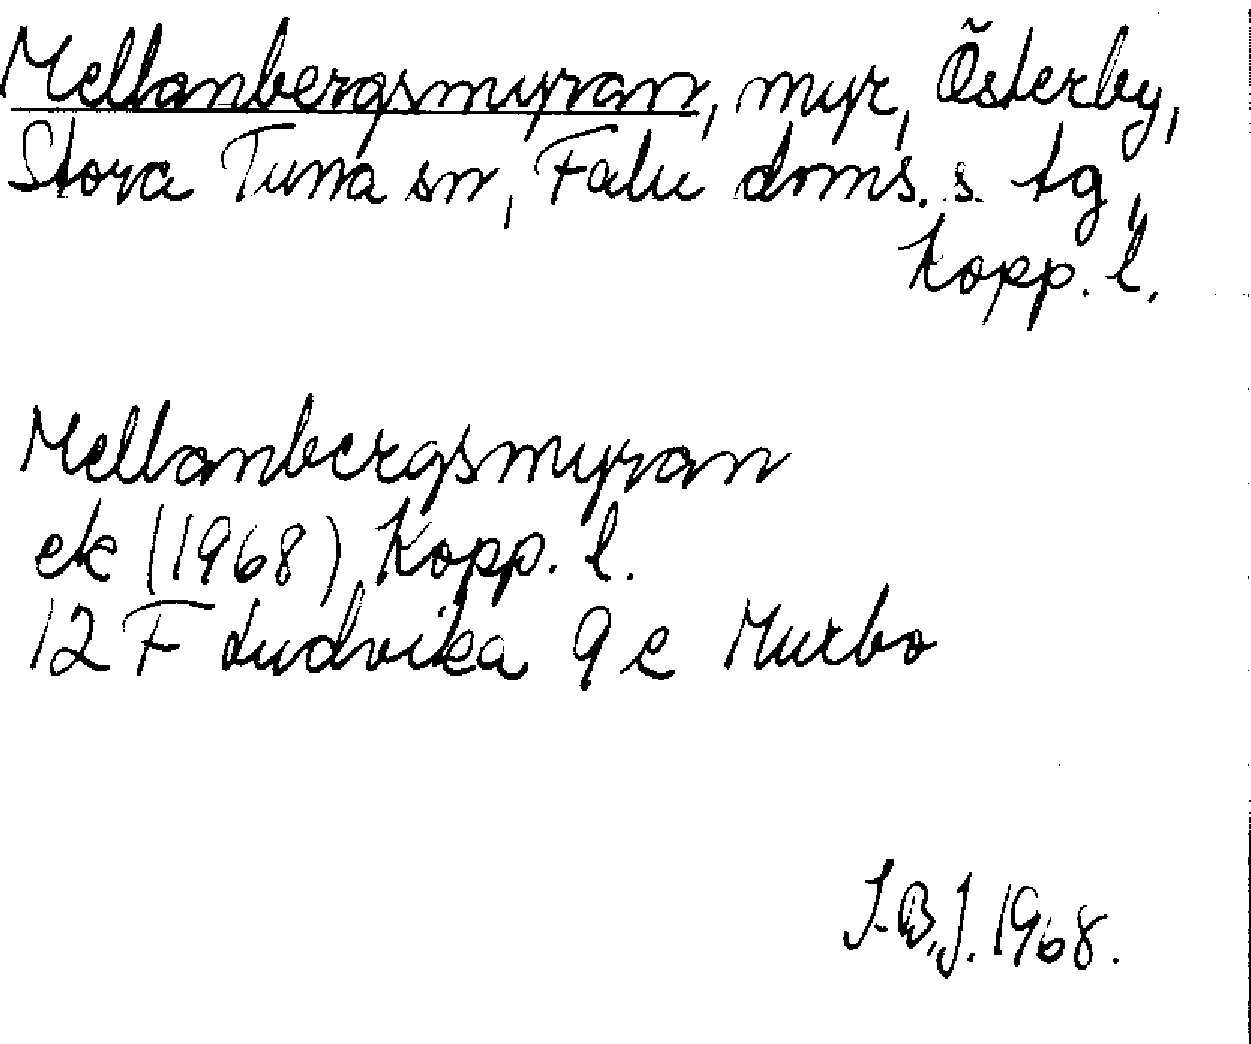 Mellanbergsmyran, myr, Österby,
Stora Tuna sn, Falu doms. s. tg,
Kopp. l.
Mellanbergsmyran
ek (1968), Kopp. l.
12 F Ludvika 9 e Murbo
I.B.J. 1968.